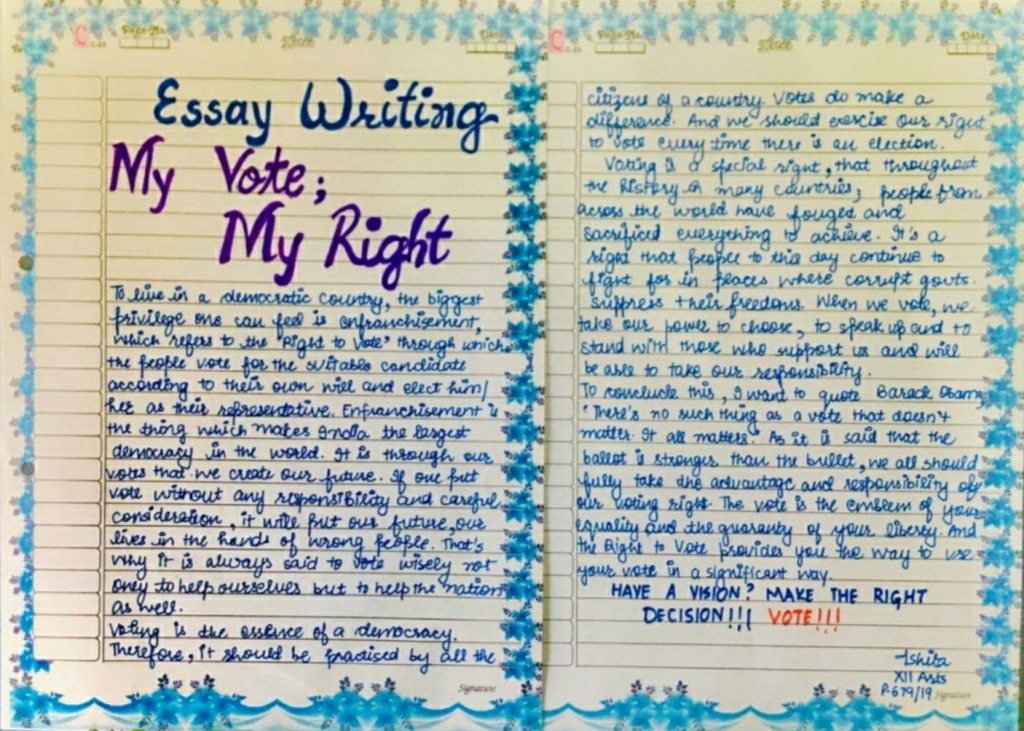 C
Page No
Notes
Date
Essay Writing
My Vote;
My Right
To live in a democratic country, the biggest
privilege one can feel is enfranchisement,
which refers to the "Right to Vote" through which
the people vote for the suitable candidate
according to their own will and elect him/
her as their representative. Enfranchisement is
the thing which makes India the largest
democracy in the world. It is through our
votes that we create our future. If one put
vote without any responsibility and careful
consideration, it will put our future, our
lives in the hands of wrong people. That's
why it is always said to vote wisely not
only to help ourselves but to help the nation
as well.
Voting is the essence of a democracy.
Therefore, it should be practised by all the
Signature
C
Page No
Notes
Date
citizens of a country. Votes do make a
difference. And we should exercise our right
to vote every time there is an election.
Voting is a special right, that throughout
the history of many countries, people from
across the world have fouged and
sacrificed everything to achieve. It's a
right that people to this day continue to
fight for in places where corrupt govts.
suppress their freedoms. When we vote, we
take our power to choose, to speak up and to
stand with those who support us and will
be able to take our responsibility.
To conclude this, I want to quote Barack Obama,
"There's no such thing as a vote that doesn't
matter. It all matters." As it is said that the
ballot is stronger than the bullet, we all should
fully take the advantage and responsibility of
our voting right. The vote is the emblem of your
equality and the guaranty of your liberty. And
the Right to Vote provides you the way to use
your vote in a significant way.
HAVE A VISION? MAKE THE RIGHT
DECISION!!! VOTE!!!
Ishita
XII Arts
P-679/19
Signature